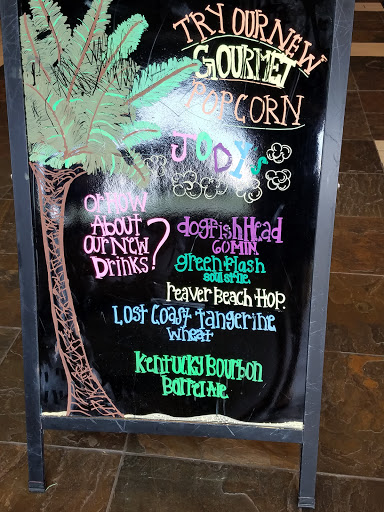 TRY OUR NEW
GOURMET
POPCORN
JODYs
Or HOW
About
our NEW
Drinks?
dogfish Head
60 MIN
green flash
soul style
reaver Beach Hop
Lost Coast Tangerine
Wheat
Kentucky Bourbon
Barrel Ale